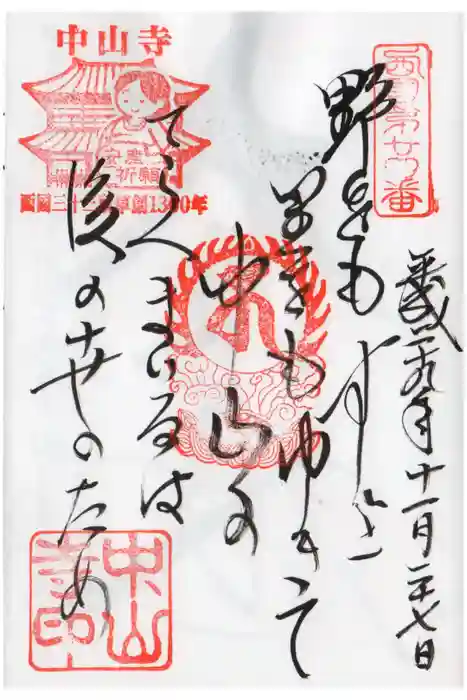 西国第廿四番
平成二十九年十一月二十七日
野をもすぎ
里をもゆきて
中山の
てらへまいるは
後の世のため
中山寺
安産
祈願
西国三十三所草創1300年
中山寺印